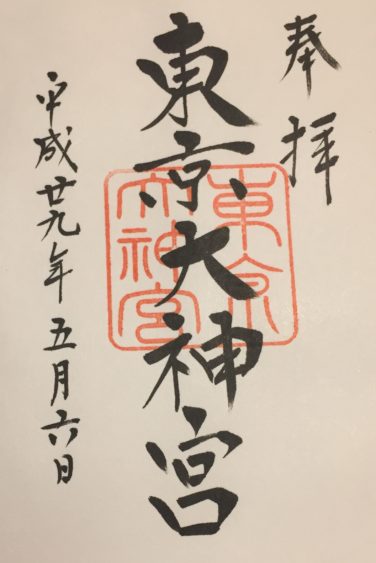 奉拝
東京大神宮
東京大神宮
平成廿九年五月六日